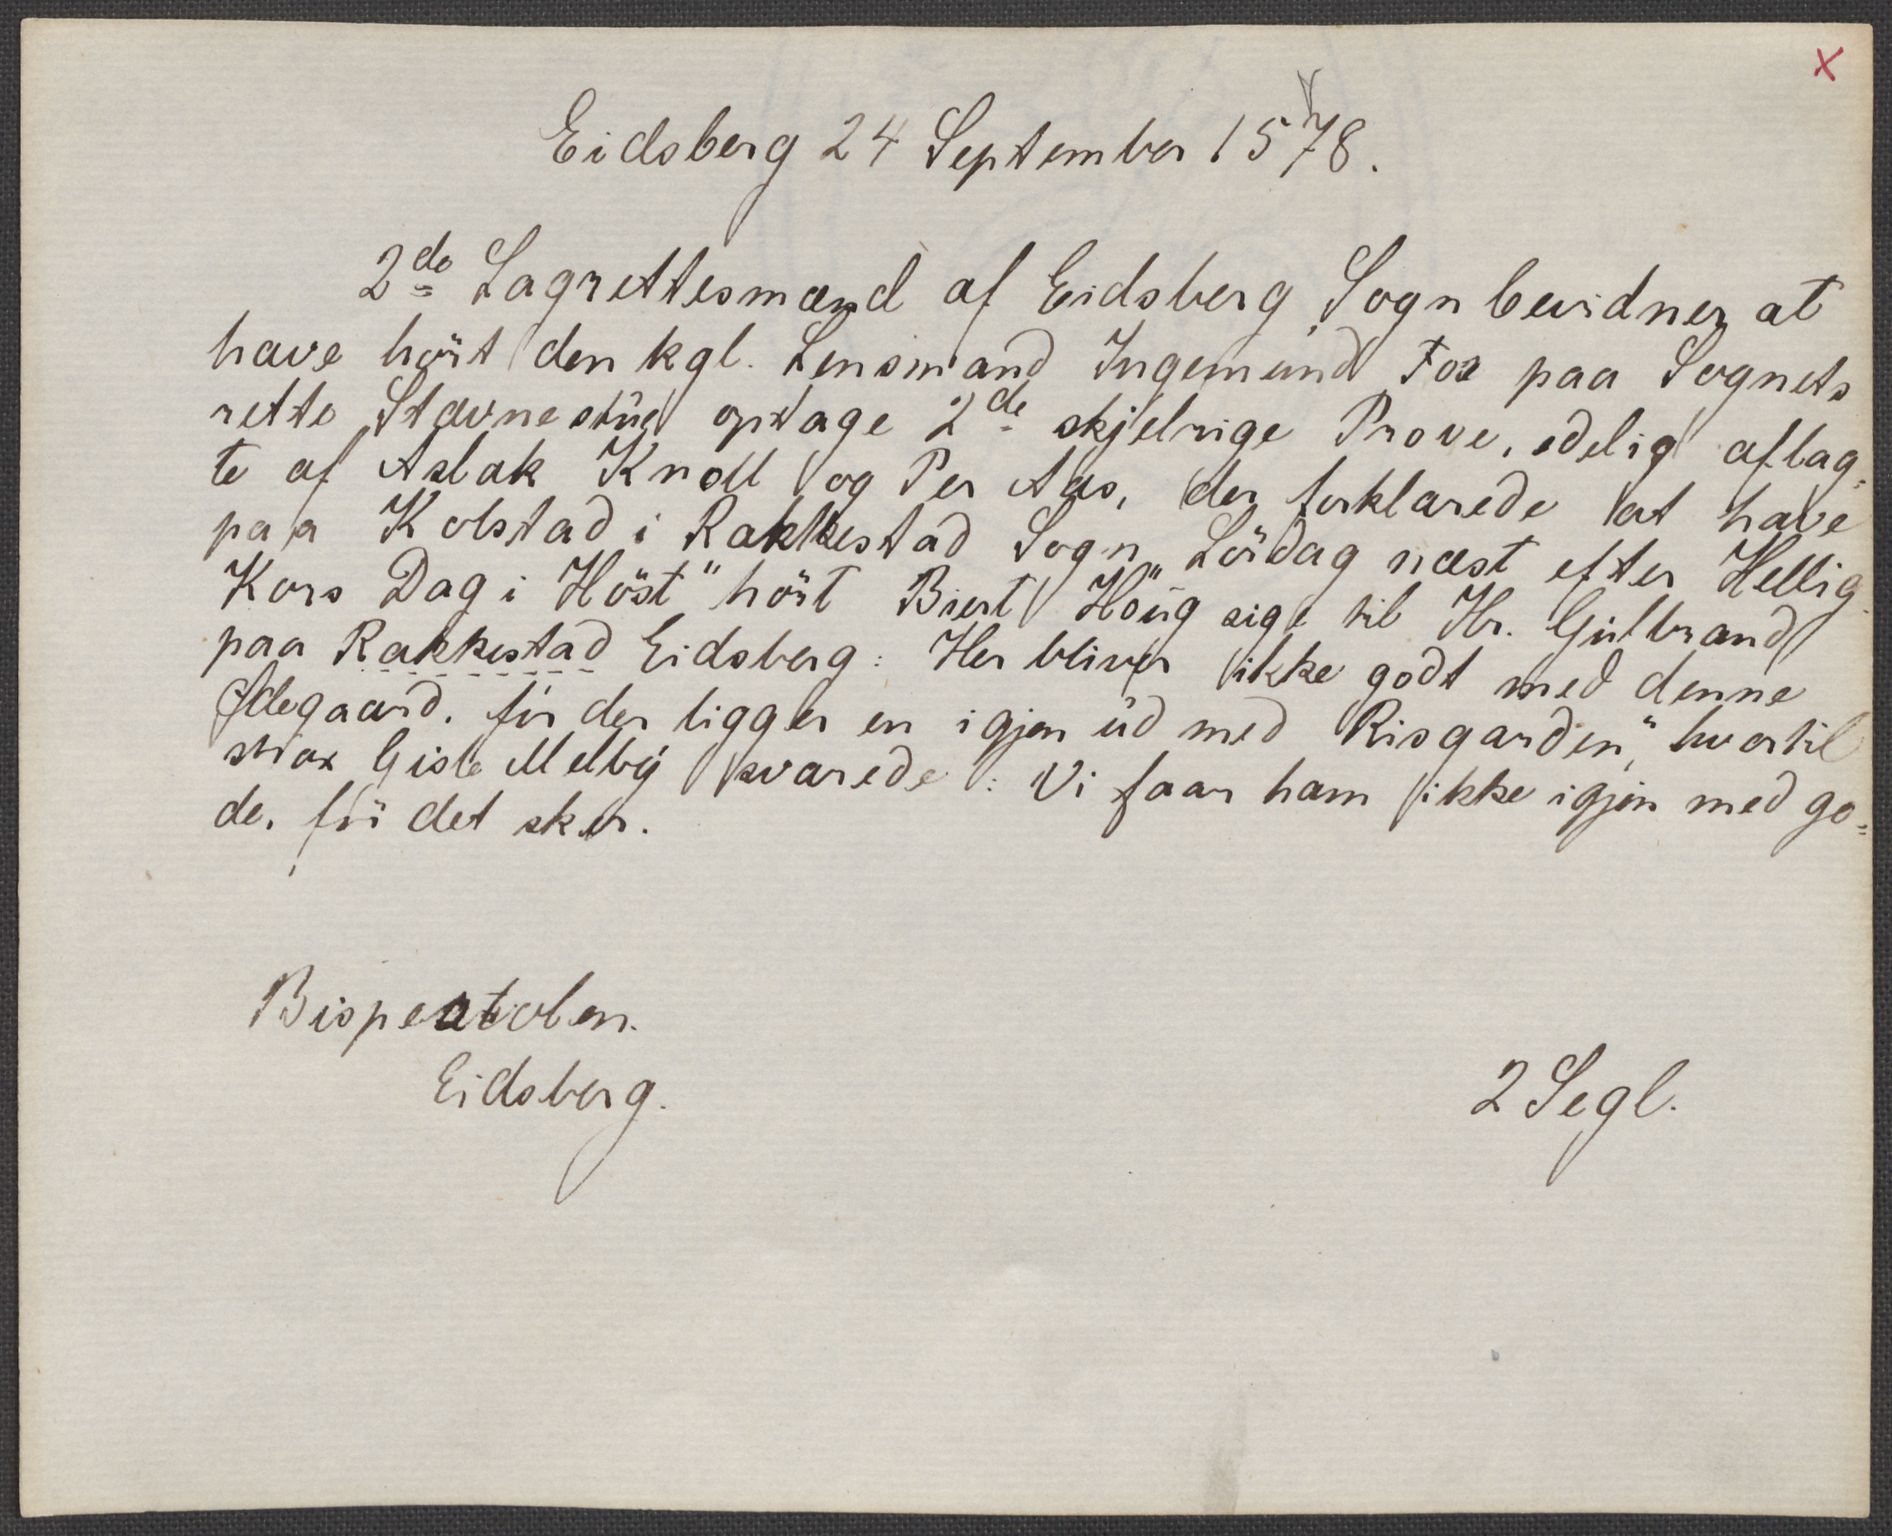 x
Eidsberg 24 September 1578.
2de Lagrettesmænd af Eidsberg Sogn bevidner at
have hört den kgl. Lensmand Ingemund Fos paa Sognets
rette Stævnestue optage 2de skjelrige Prove, edelig aflag-
te af Aslak Knoll og Per Aas, der forklarede at have
paa Kolstad i Rakkestad Sogn „Lördag næst efter Hellig
Kors Dag i Höst" hört Biert Höüg sige til Hr. Gulbrand
paa Rakkestad Eidsberg: Her bliver ikke godt med denne
Ødegaard, för der ligger en igjen ud med Risgarden", hvortil
strax Gisle Melby svarede: Vi faar ham ikke igjen med go=
de, för det sker.
Bispestolen.
Eidsberg.
2 Segl.